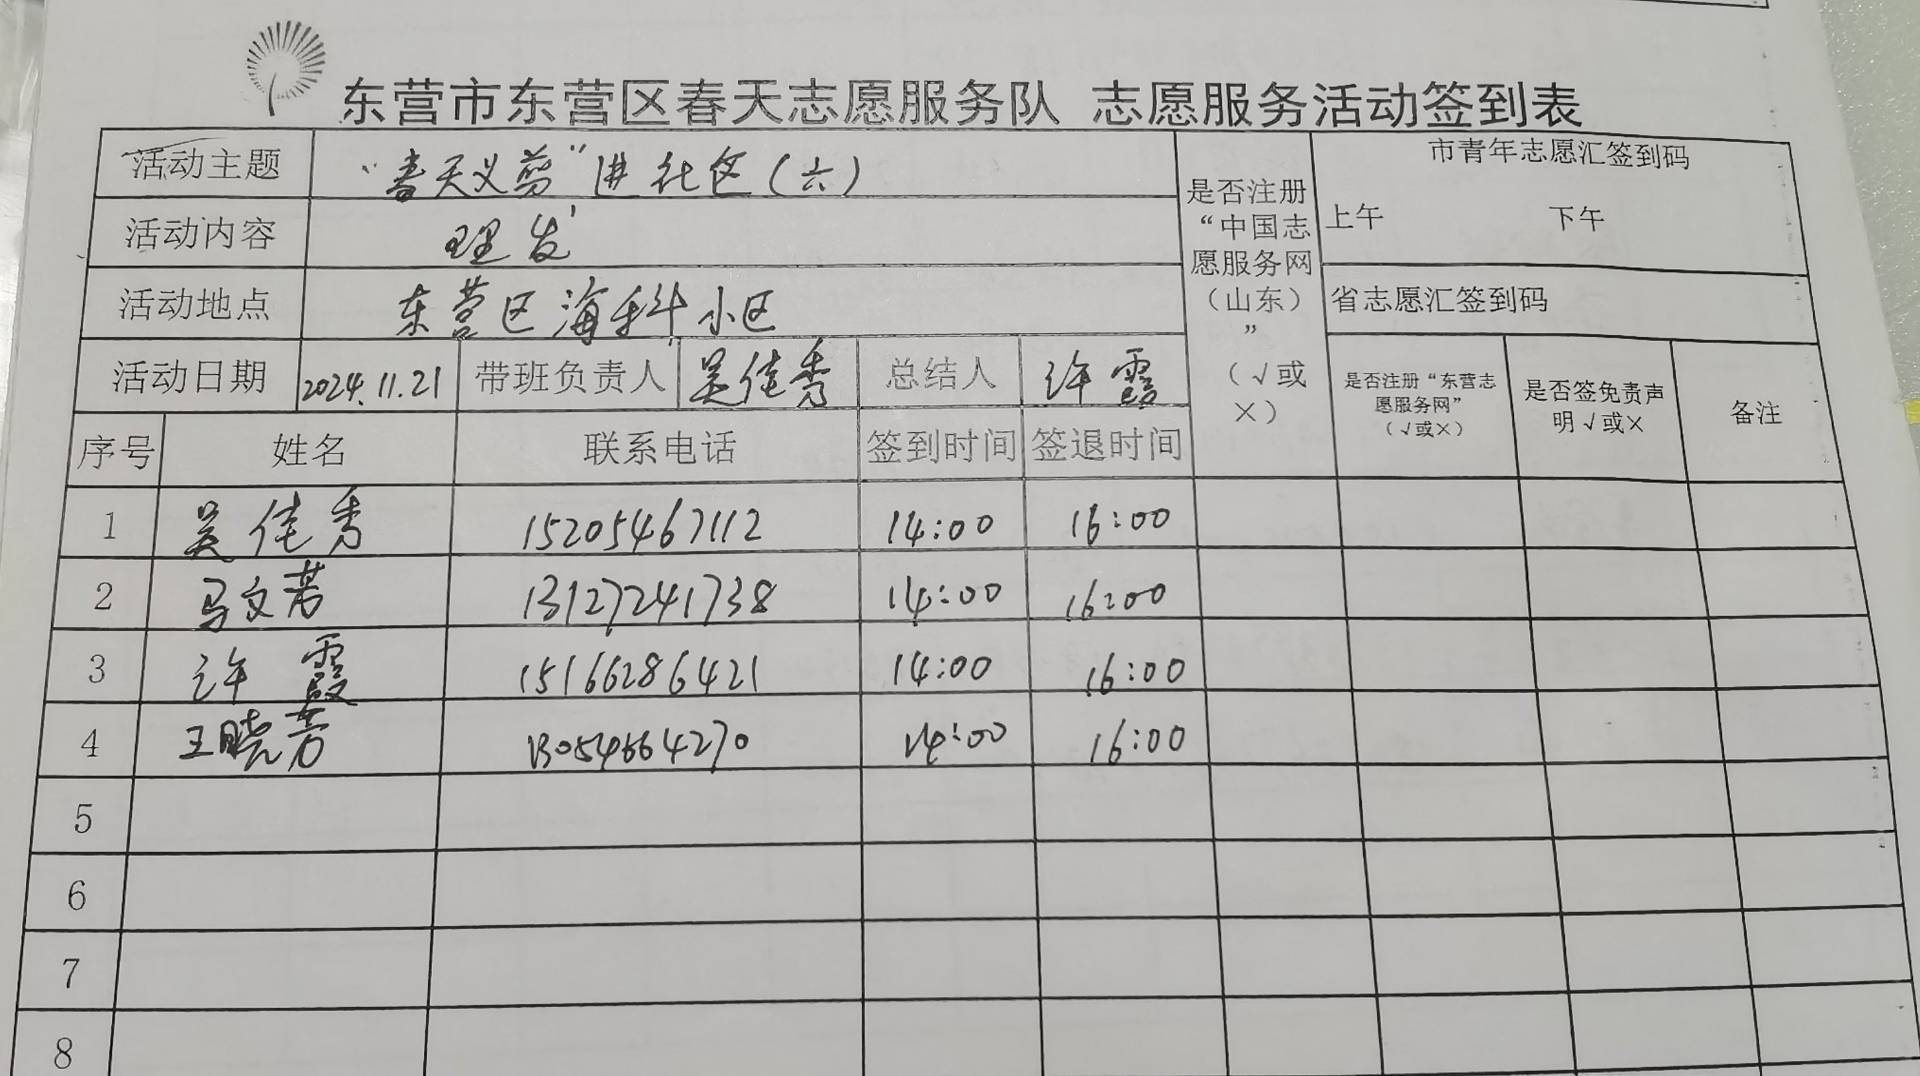 东营市东营区春天志愿服务队 志愿服务活动签到表
活动主题 “春天义剪”进社区(六)
活动内容 理发
活动地点 东营区海科小区
是否注册“中国志愿服务网(山东)”(√或×)
市青年志愿汇签到码
上午 下午
省志愿汇签到码
活动日期 2024.11.21 带班负责人 吴佳秀 总结人 许霞
是否注册“东营志愿服务网”(√或×) 是否签免责声明√或× 备注
序号 姓名 联系电话 签到时间 签退时间
1 吴佳秀 15205467112 14:00 16:00
2 马文芳 13127241738 14:00 16:00
3 许霞 15166286421 14:00 16:00
4 王晓芳 13054664270 14:00 16:00
5
6
7
8